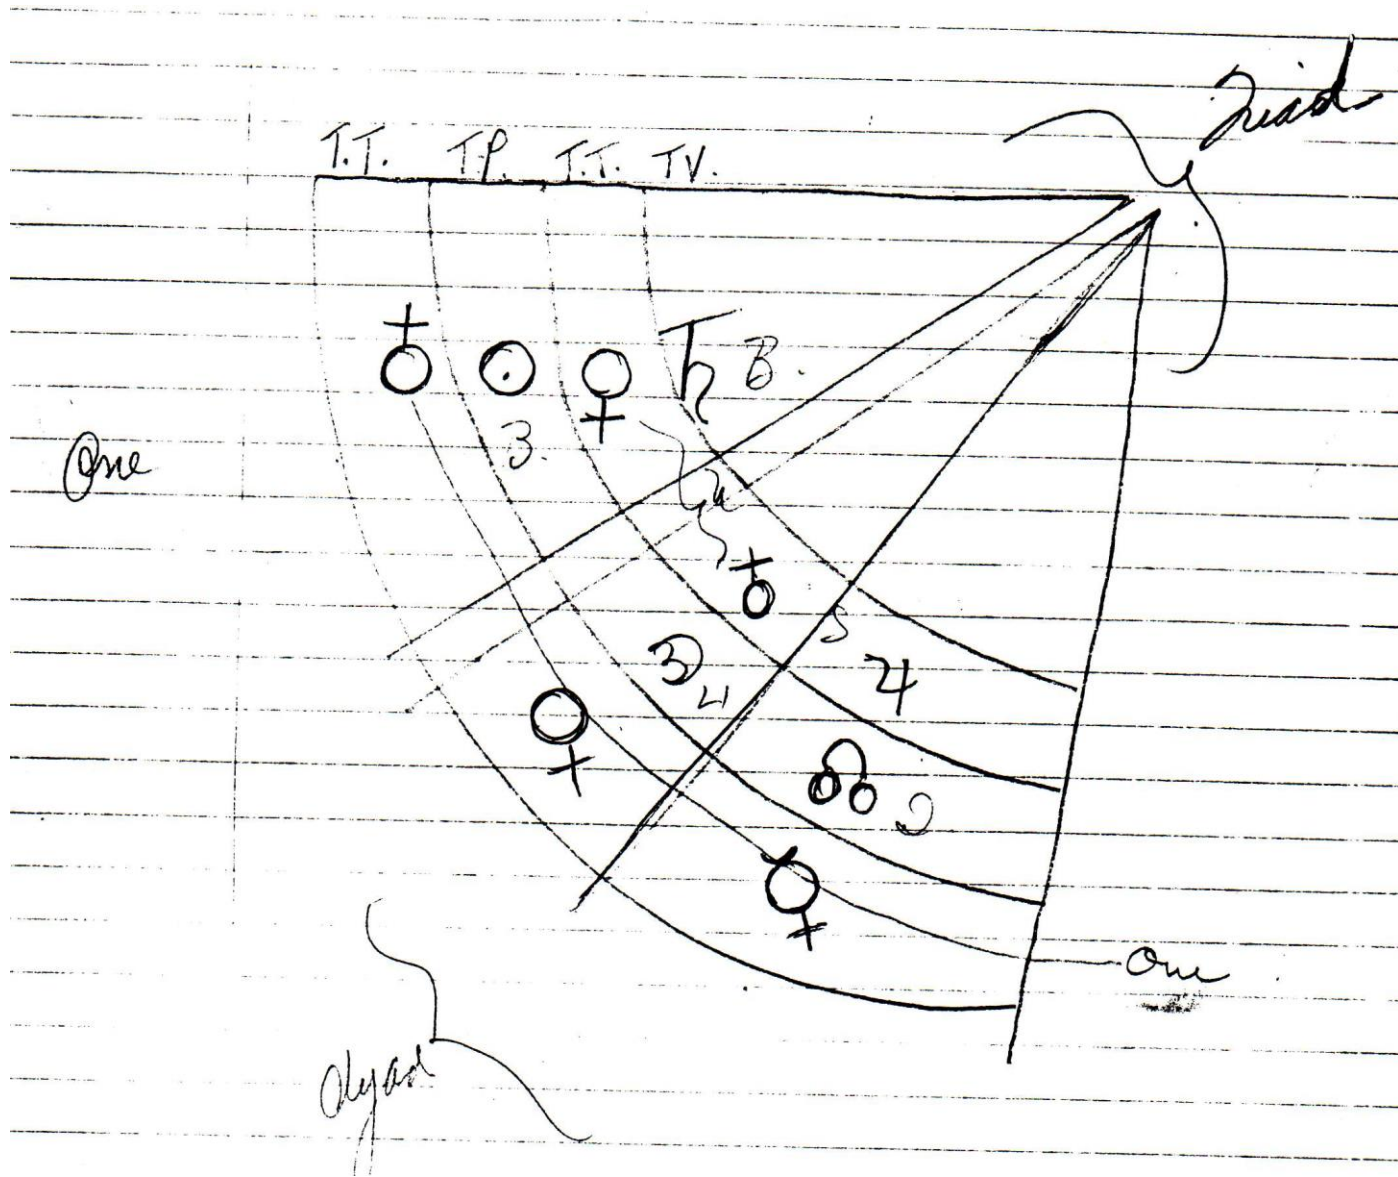 Triad
T.T. T.P. T.T. TV.
♁ ☉ ♀ ♄ B.
3.
One
♁
♃
♀
☊
☿
One
dyad